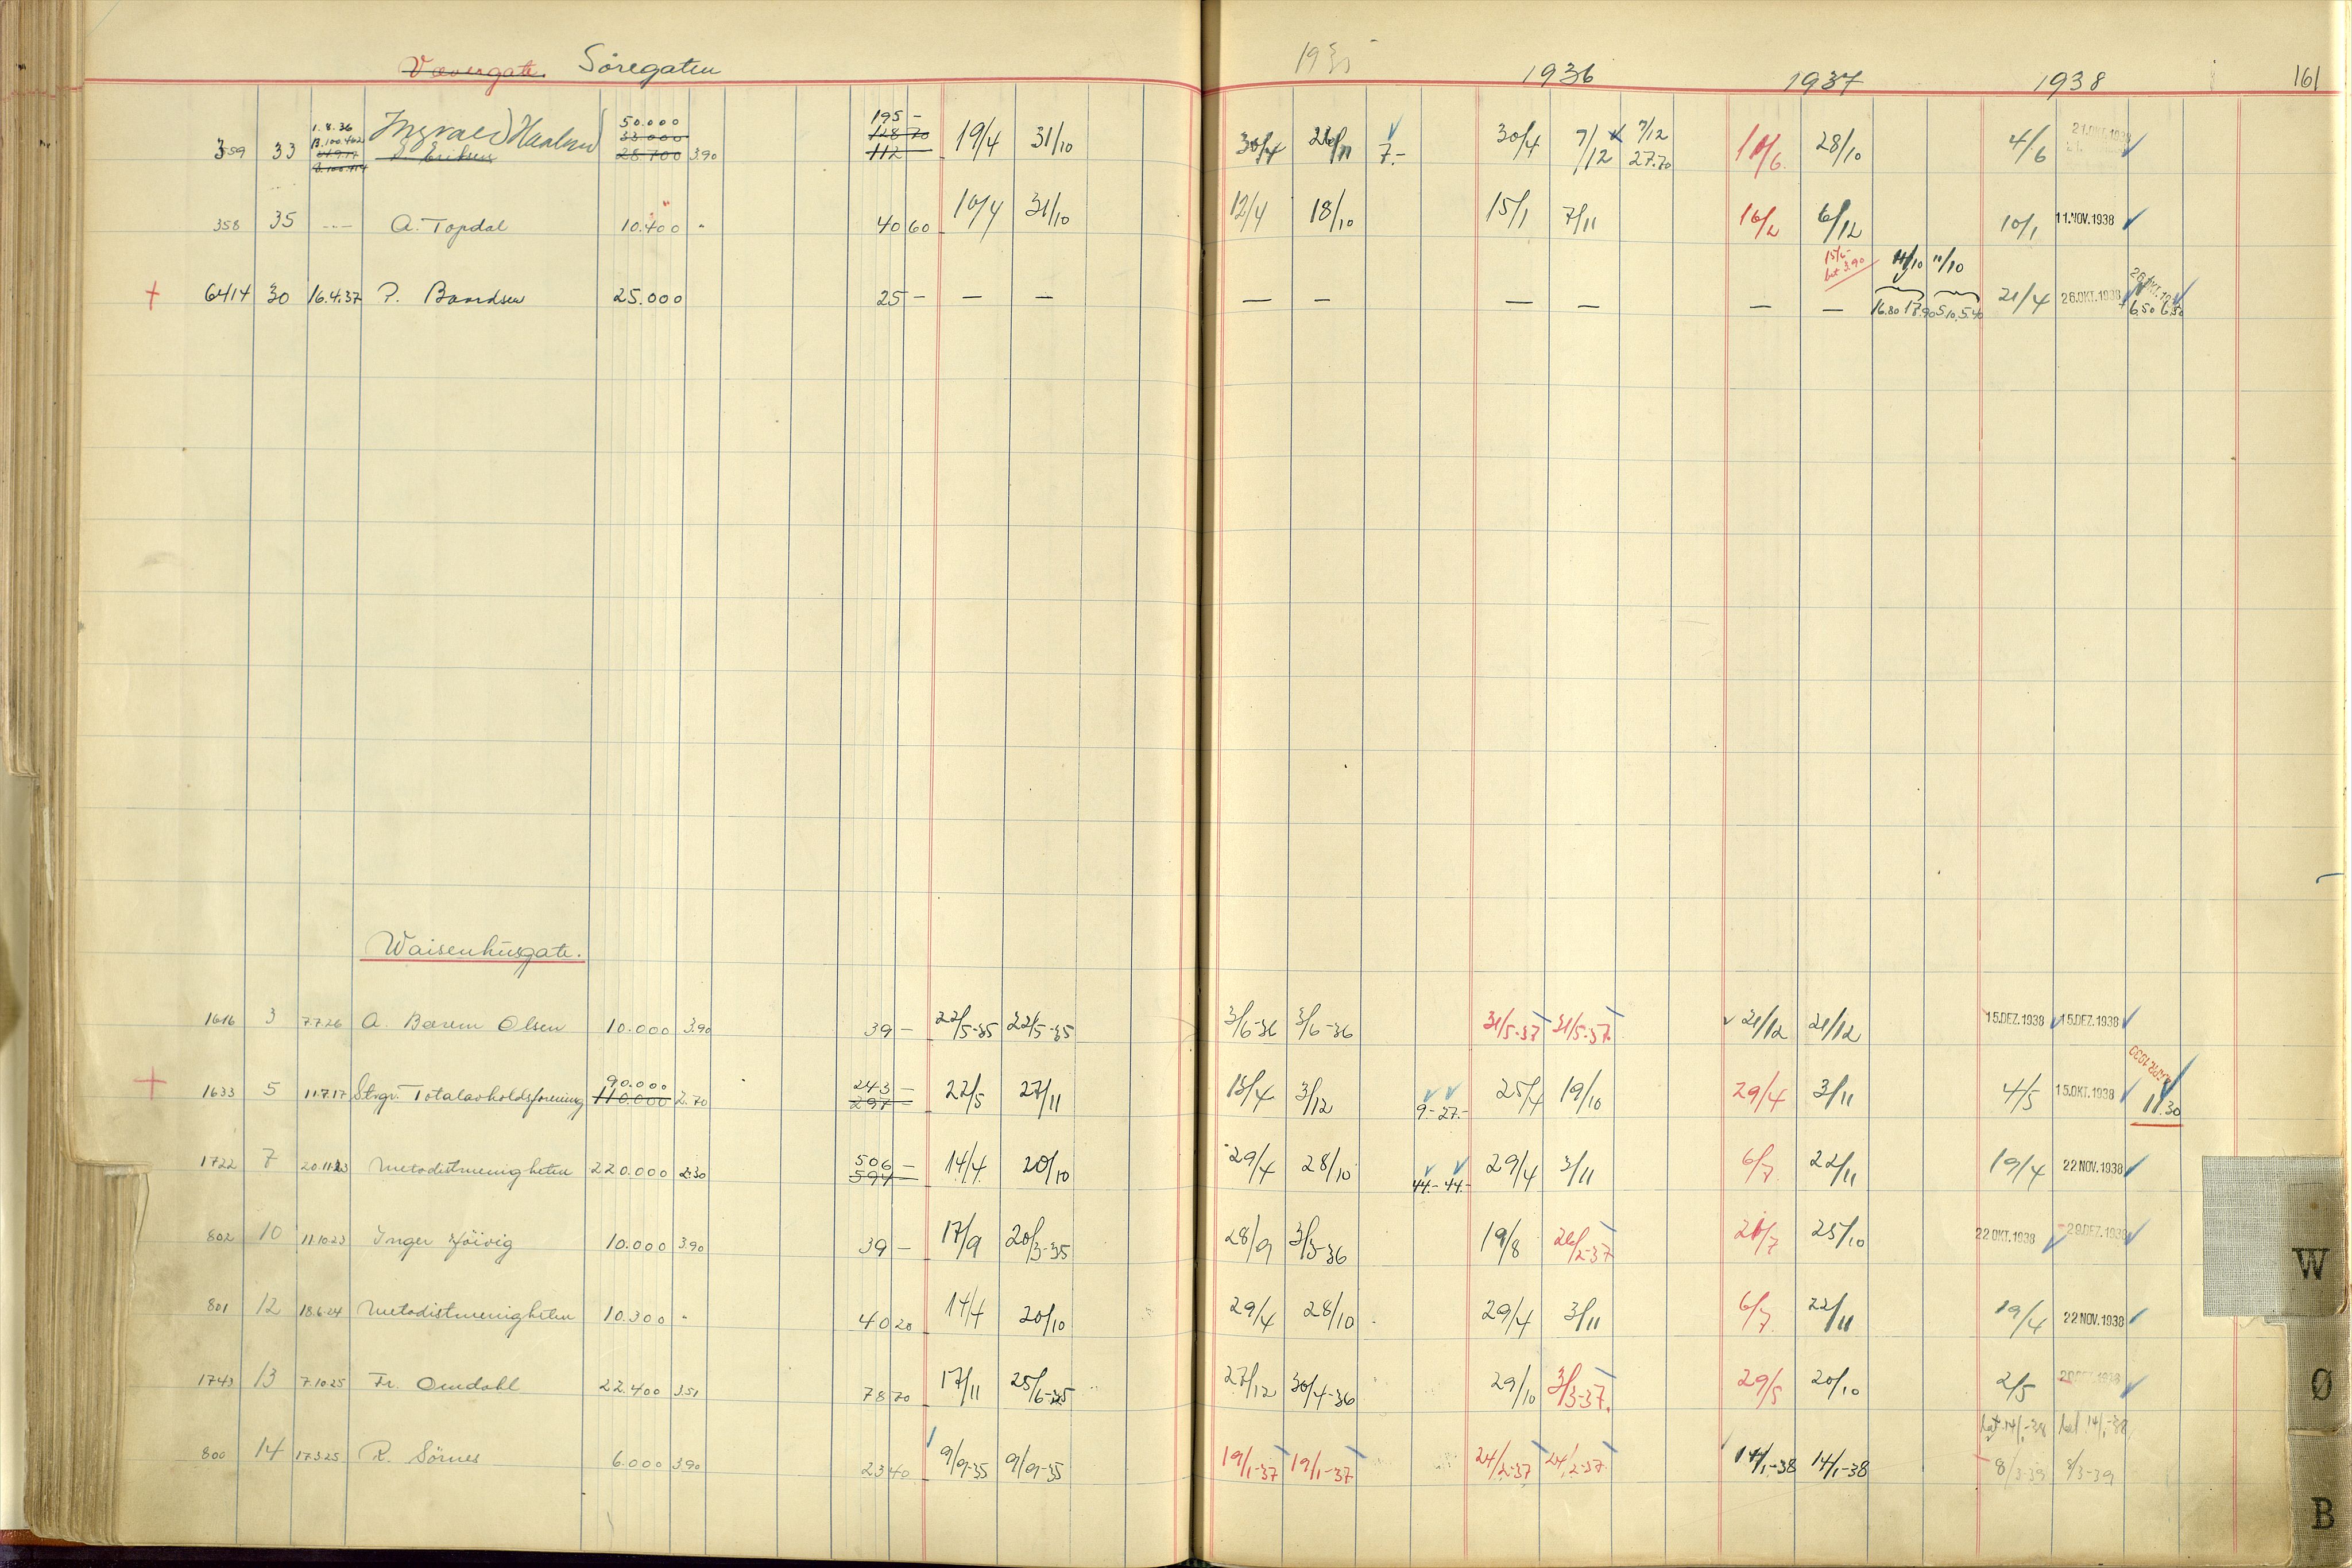 Søregaten 1935 1936 1937 1938 161
50.000 195 -
1.8.36 33.000 128 70
359 33 B.100.402 Haaland 28.700 3.90 112 19/4 31/10 30/4 26/11 7.- 30/4 7/12 7/12 27.70 10/6 28/10 4/6 21.OKT.1938
358 35 --- A. Topdal 10.400 " 40 60 16/4 31/10 12/4 18/10 15/1 7/11 16/2 6/12 10/1 11.NOV.1938
15/5 3.90 11/10 11/10
6414 30 16.4.37 P. 25.000 25 - — — — — — — — — 16.80 17.90 5.10 5.40 21/4 26.OKT.1938 6.50 6.50
Waisenhusgate.
1616 3 7.7.26 A. Olsen 10.000 3.90 39 - 22/5-35 22/5-35 3/6-36 3/6-36 31/5-37 31/5-37 21/12 21/12 15.DEZ.1938 15.DEZ.1938
90.000 243 -
1633 5 11.7.17 Stvgr. Totalavholdsforening 110.000 2.70 297 - 22/5 27/11 15/4 3/12 9.- 27.- 25/4 19/10 29/4 3/11 4/5 15.OKT.1938 11.30
506 -
1722 7 20.11.23 Metodistmenigheten 220.000 2.30 594 - 14/4 20/10 29/4 28/10 44.- 44.- 29/4 3/11 6/7 22/11 19/4 22 NOV.1938
802 10 11.10.23 Inger 10.000 3.90 39 - 17/9 20/3-35 28/9 3/3-36 19/8 26/2-37 20/7 25/10 22 OKT.1938 29.DEZ.1938
W
801 12 18.6.24 Metodistmenigheten 10.300 " 40 20 14/4 20/10 29/4 28/10 29/4 3/11 6/7 22/11 19/4 22 NOV.1938
1743 13 7.10.25 Fr. Omdahl 22.400 3.51 78 70 17/11 25/6-35 27/12 30/4-36 29/10 3/3-37 29/5 20/10 2/5
Ø
bet. 14/1-38 bet. 14/1-38
800 14 17.3.25 R. Sörnes 6.000 3.90 23 40 9/9-35 9/9-35 19/1-37 19/1-37 24/2-37 24/2-37 14/1-38 14/1-38 8/3-39 8/3-39
B